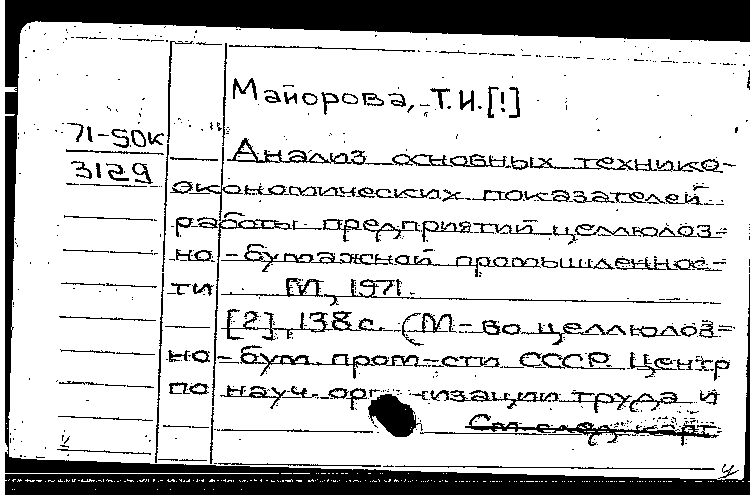 Майорова, Т.И.[!]
71-50к
3129
Анализ основных технико-
экономических показателей
работы предприятий целлюлоз=
но-бумажной промышленнос=
ти М., 1971.
[2], 138 с. (М-во целлюлоз=
но-бум. пром-сти СССР. Центр
по науч. организации труда и
См след. карт